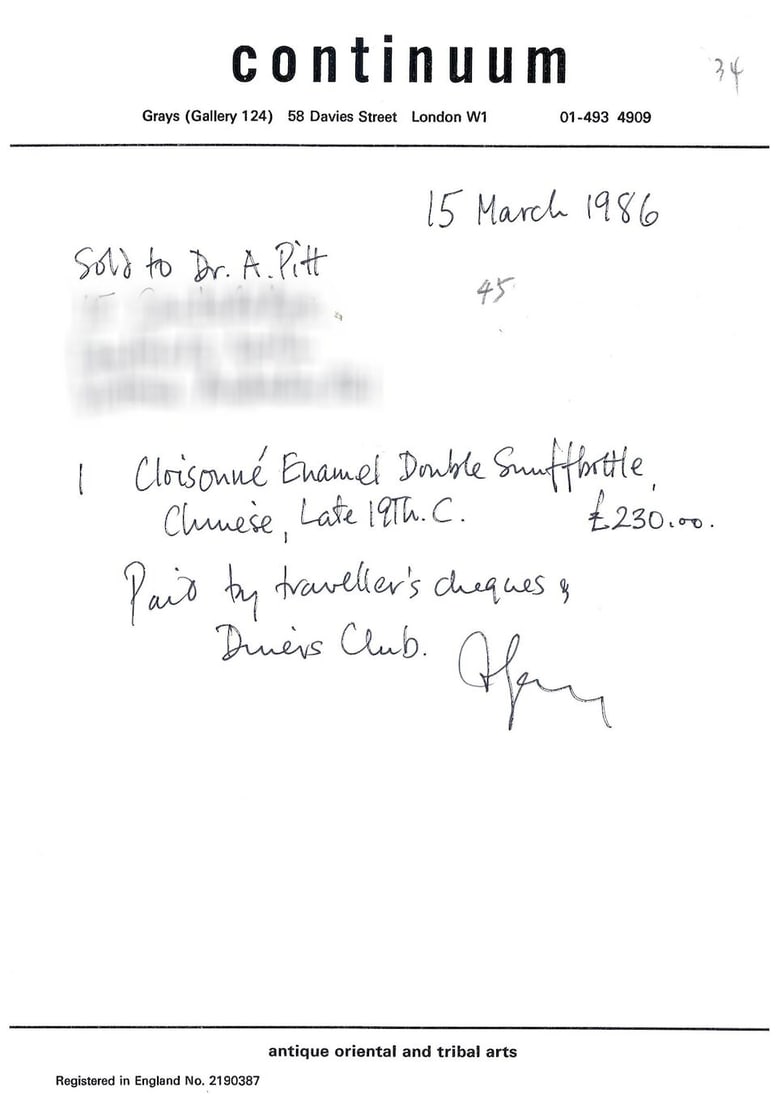 continuum
34
Grays (Gallery 124) 58 Davies Street London W1 01-493 4909
15 March 1986
Sold to Dr. A. Pitt
45
1 Cloisonné Enamel Double Snuffbottle,
Chinese, Late 19Th. C. £230.00.
Paid by traveller's cheques &
Diners Club.
antique oriental and tribal arts
Registered in England No. 2190387